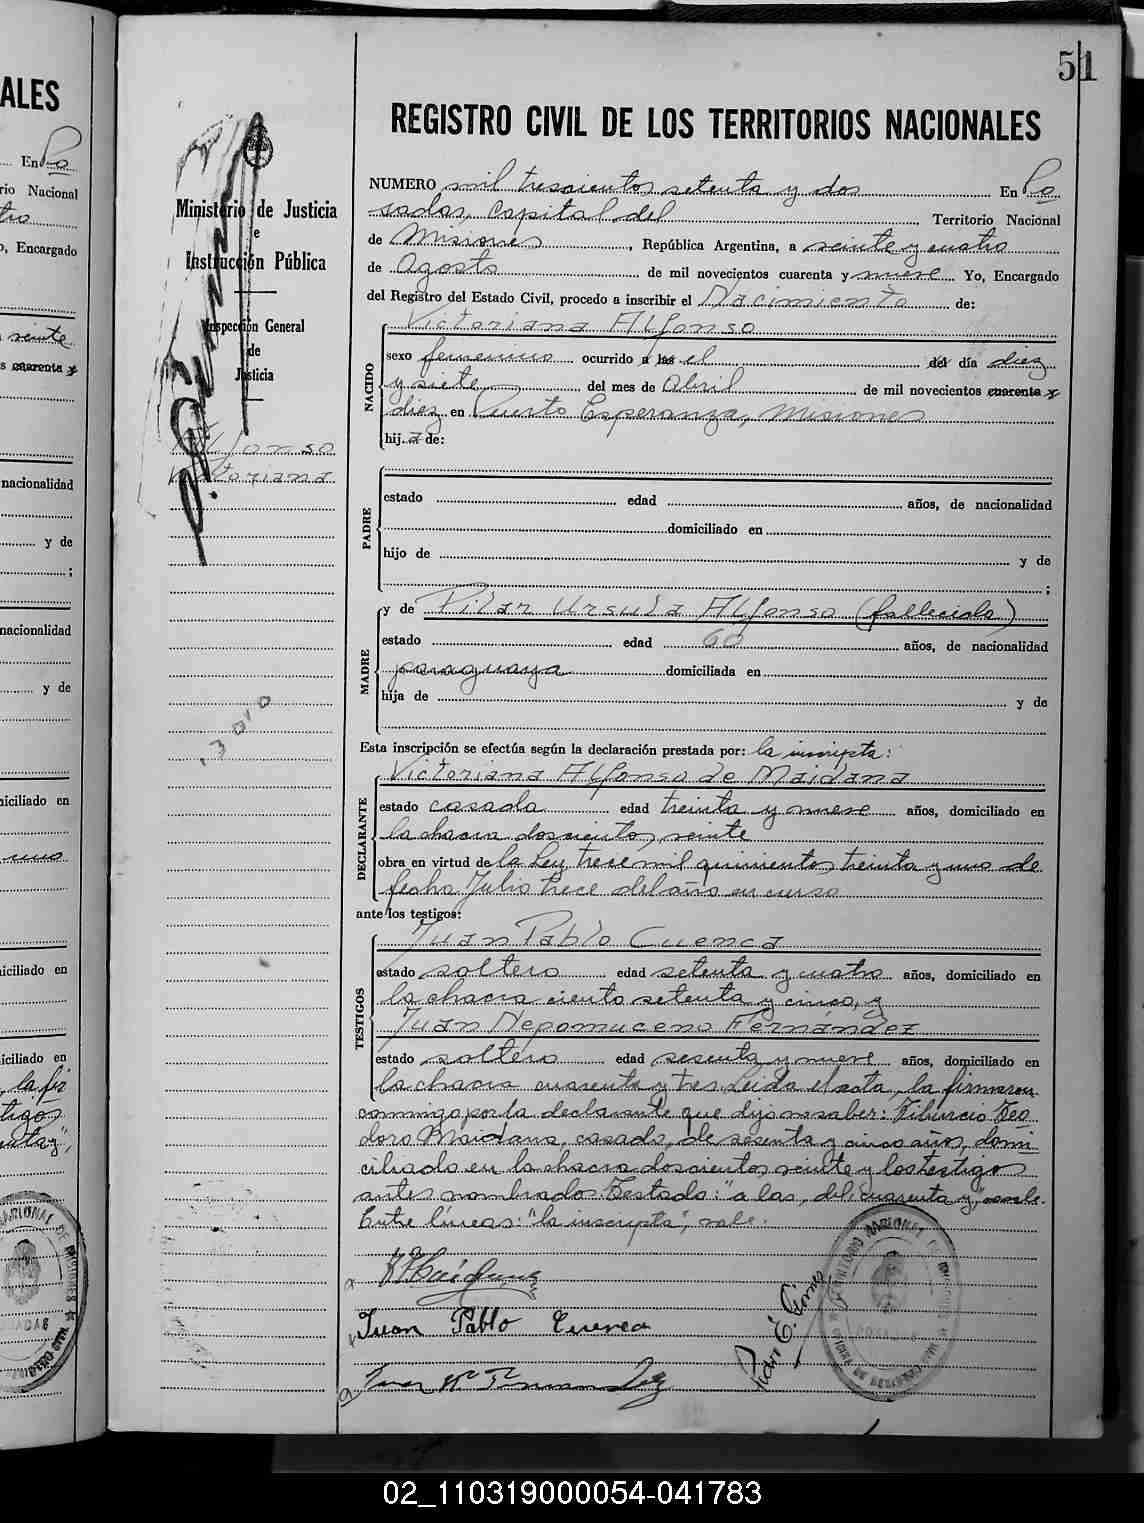 51
REGISTRO CIVIL DE LOS TERRITORIOS NACIONALES
Ministerio de Justicia
e
Instrucción Pública
Inspección General
de
Justicia
Alfonso
Victoriana
NUMERO mil trescientos setenta y dos En Po
sadas, capital del Territorio Nacional
de Misiones, República Argentina, a veinte y cuatro
de Agosto de mil novecientos cuarenta y nueve Yo, Encargado
del Registro del Estado Civil, procedo a inscribir el Nacimiento de:
NACIDO
Victoriana Alfonso
sexo femenino ocurrido a las el del día diez
y siete del mes de Abril de mil novecientos cuarenta y
diez en Puerto Esperanza, Misiones
hija de:
PADRE
estado edad años, de nacionalidad
domiciliado en
hijo de y de
;
MADRE
y de Pilar Ursula Alfonso (fallecida)
estado edad 60 años, de nacionalidad
paraguaya domiciliada en
hija de y de
Esta inscripción se efectúa según la declaración prestada por: la inscripta:
DECLARANTE
Victoriana Alfonso de Maidana
estado casada edad treinta y nueve años, domiciliado en
la chacra doscientos veinte
obra en virtud de la Ley trece mil quinientos treinta y uno de
fecha Julio trece del año en curso
ante los testigos:
TESTIGOS
Juan Pablo Cuenca
estado soltero edad setenta y cuatro años, domiciliado en
la chacra ciento setenta y cinco, y
Juan Nepomuceno Fernández
estado soltero edad sesenta y nueve años, domiciliado en
la chacra cuarenta y tres. Leida el acta, la firmaron
conmigo por la declarante que dijo no saber: Tiburcio Teo
doro Maidana, casado, de sesenta y cinco años, domi
ciliado en la chacra doscientos veinte y los testigos
antes nombrados. Testado: "a las, del, cuarenta y", vale.
Entre líneas: "la inscripta", vale.
Juan Pablo Cuenca
3010
02_110319000054-041783
ALES
En Po
rio Nacional
o, Encargado
veinte
s cuarenta y
nacionalidad
y de
;
nacionalidad
y de
iciliado en
iciliado en
iciliado en